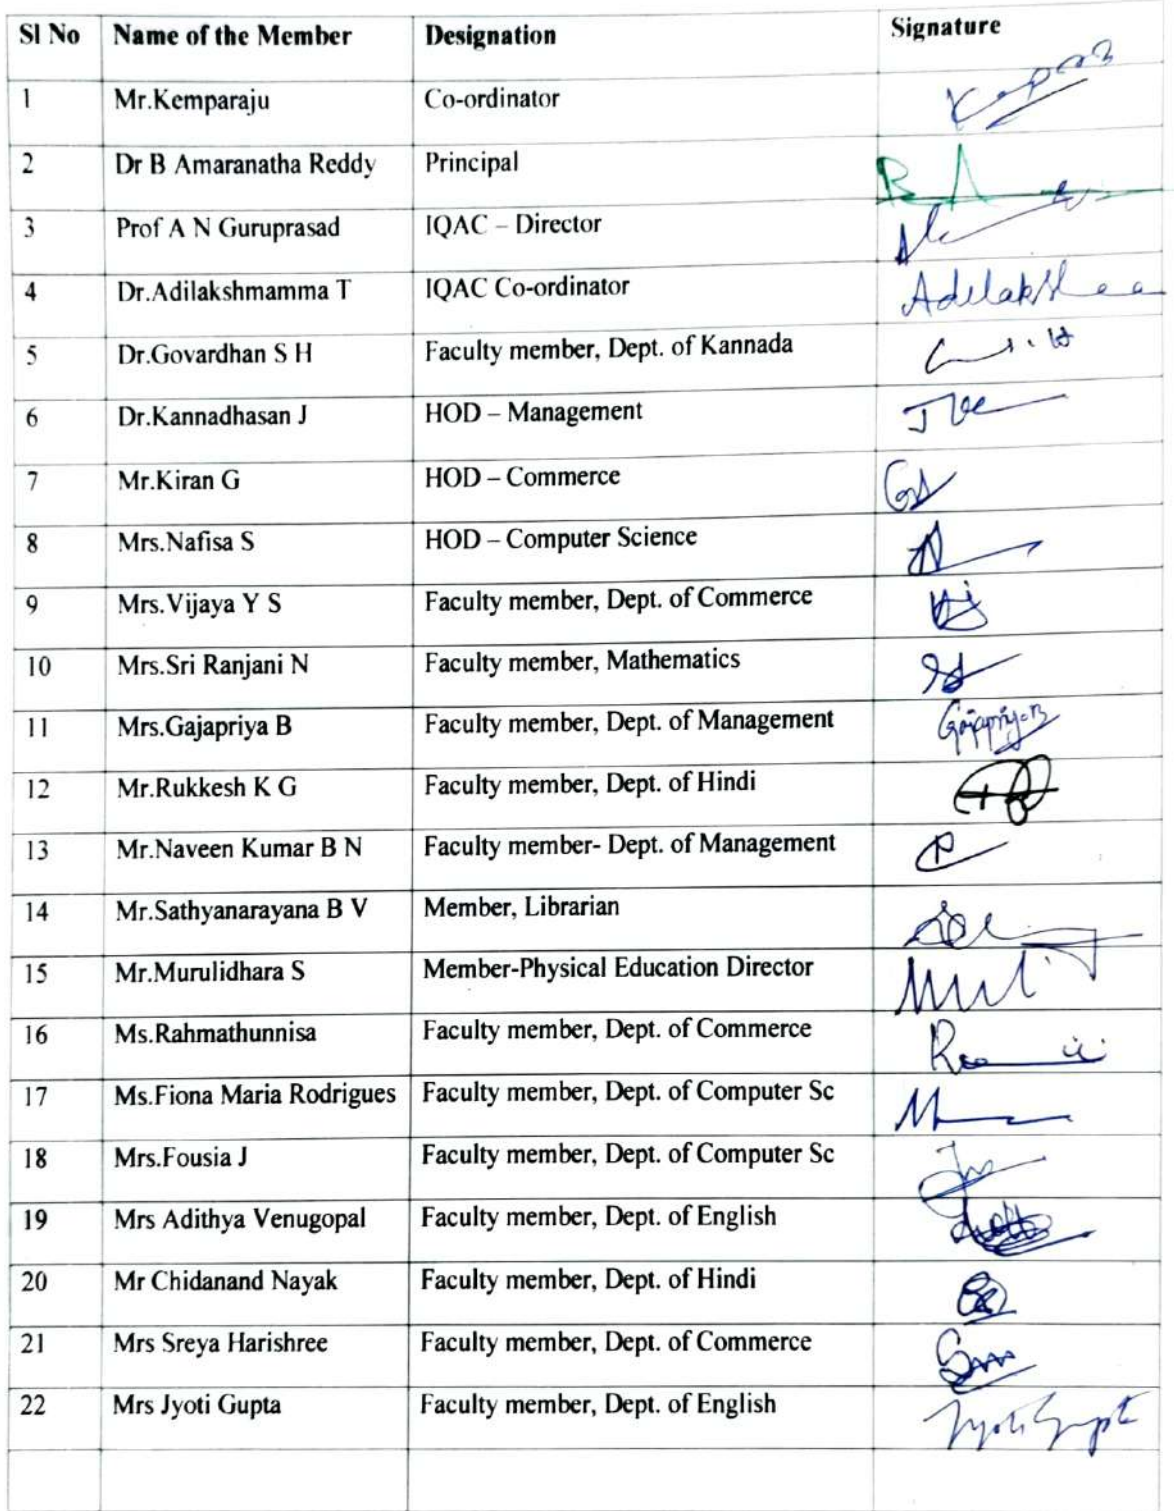 Sl No Name of the Member Designation Signature
1 Mr.Kemparaju Co-ordinator
2 Dr B Amaranatha Reddy Principal
3 Prof A N Guruprasad IQAC – Director
4 Dr.Adilakshmamma T IQAC Co-ordinator
5 Dr.Govardhan S H Faculty member, Dept. of Kannada
6 Dr.Kannadhasan J HOD – Management
7 Mr.Kiran G HOD – Commerce
8 Mrs.Nafisa S HOD – Computer Science
9 Mrs.Vijaya Y S Faculty member, Dept. of Commerce
10 Mrs.Sri Ranjani N Faculty member, Mathematics
11 Mrs.Gajapriya B Faculty member, Dept. of Management Gajapriya.B
12 Mr.Rukkesh K G Faculty member, Dept. of Hindi
13 Mr.Naveen Kumar B N Faculty member- Dept. of Management
14 Mr.Sathyanarayana B V Member, Librarian
15 Mr.Murulidhara S Member-Physical Education Director
16 Ms.Rahmathunnisa Faculty member, Dept. of Commerce
17 Ms.Fiona Maria Rodrigues Faculty member, Dept. of Computer Sc
18 Mrs.Fousia J Faculty member, Dept. of Computer Sc
19 Mrs Adithya Venugopal Faculty member, Dept. of English
20 Mr Chidanand Nayak Faculty member, Dept. of Hindi
21 Mrs Sreya Harishree Faculty member, Dept. of Commerce
22 Mrs Jyoti Gupta Faculty member, Dept. of English Jyoti Gupta